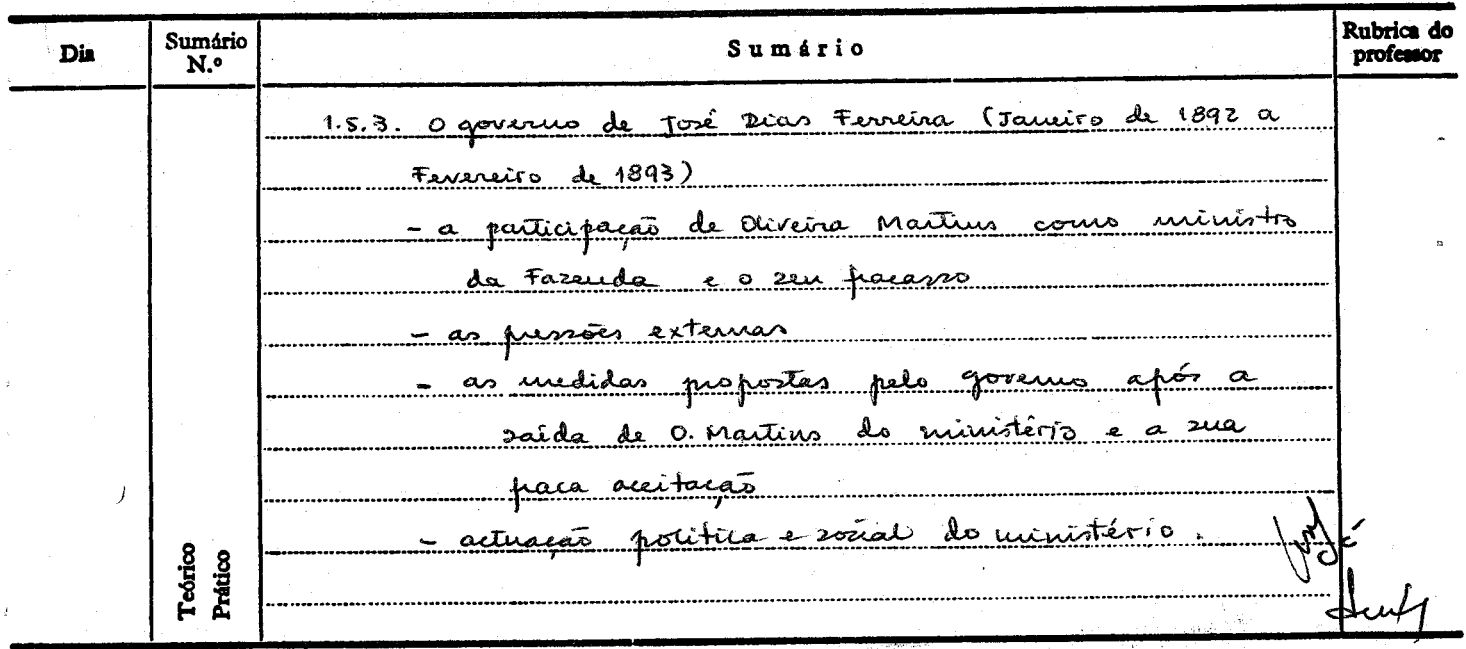 Dia
Sumário N.º
Sumário
Rubrica do professor
1.5.3. O governo de José Dias Ferreira (Janeiro de 1892 a
Fevereiro de 1893)
- a participação de Oliveira Martins como ministro
da Fazenda e o seu fracasso
- as pressões externas
- as medidas propostas pelo governo após a
saída de O. Martins do ministério e a sua
fraca aceitação
- actuação política e social do ministério.
Teórico
Prático